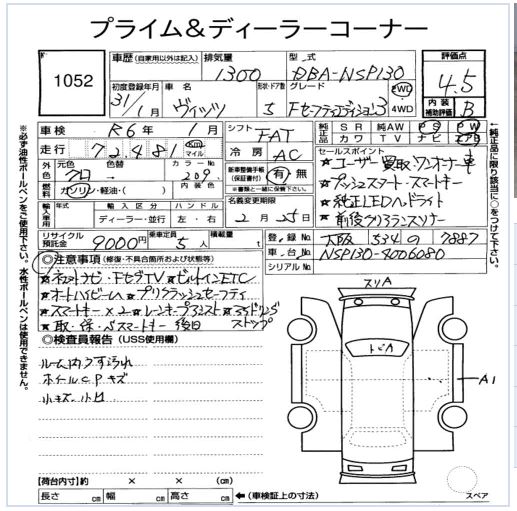 プライム＆ディーラーコーナー
1052
車歴 (自家用以外は記入) 排気量 1300 型式 DBA-NSP130 評価点 4.5
初度登録年月 31/1月 車名 ヴィッツ 形状・ドア数 5 グレード Fセーフティエディション3 2WD 4WD 内装補助評価 B
車検 R6年1月 シフト FAT 純正品 SR 純AW PS PW カワ TV ナビ エアB
走行 72,481 Km マイル 冷房 AC セールスポイント
外装 元色 クロ 色替 カラーNo. 209 新車整備手帳(保証書付) 有・無 ※書類と一緒に保管して下さい。
★ユーザー買取・ワンオーナー車
燃料 ガソリン・軽油・( ) 内装色 名義変更期限 2月25日
★プッシュスタート・スマートキー
★純正LEDヘッドライト
輸入車用 年式 輸入区分 ディーラー・並行 ハンドル 左・右
★前後クリアランスソナー
リサイクル預託金 9000円 乗車定員 5人 積載量 t 登録No. 大阪 534 の 7887
車台No. NSP130-4006080
シリアルNo.
◎注意事項 (修復・不具合箇所および状態等)
★ネットナビ・フセグTV★ビルトインETC
★オートハイビーム★プリクラッシュセーフティ
★スマートキー×2★レーンキープアシスト★アイドリングストップ
★取・保・Sスマートキー後日
◎検査員報告 (USS使用欄)
ルーム内ウすよごれ
ホイールCPキズ
小キズ・小凹
スリA
トビA
A1
スペア
【荷台内寸】約 × × (cm)
長さ cm 幅 cm 高さ cm ←(車検証上の寸法)
※必ず油性ボールペンをご使用下さい。水性ボールペンは使用できません。
←純正品に限り該当に○をつけて下さい。